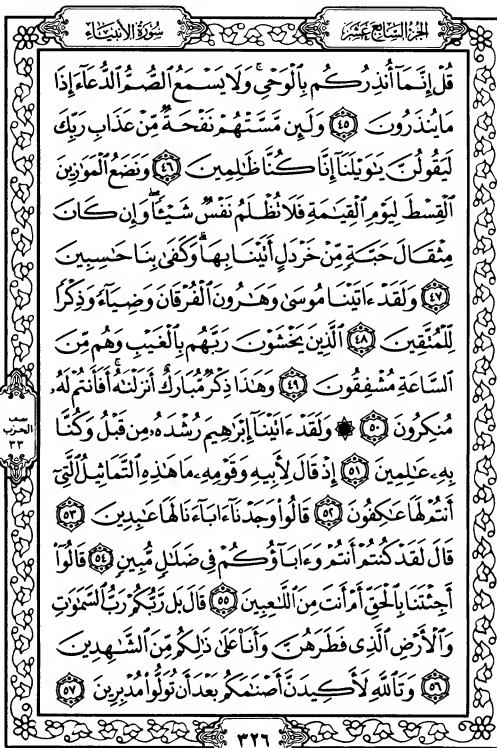 سُورَةُ الأَنبِيَاءِ
الجُزْءُ السَّابِعَ عَشَرَ
قُلْ إِنَّمَآ أُنذِرُكُم بِٱلْوَحْىِ ۚ وَلَا يَسْمَعُ ٱلصُّمُّ ٱلدُّعَآءَ إِذَا
مَا يُنذَرُونَ ٤٥ وَلَئِن مَّسَّتْهُمْ نَفْحَةٌ مِّنْ عَذَابِ رَبِّكَ
لَيَقُولُنَّ يَٰوَيْلَنَآ إِنَّا كُنَّا ظَٰلِمِينَ ٤٦ وَنَضَعُ ٱلْمَوَٰزِينَ
ٱلْقِسْطَ لِيَوْمِ ٱلْقِيَٰمَةِ فَلَا تُظْلَمُ نَفْسٌ شَيْـًٔا ۖ وَإِن كَانَ
مِثْقَالَ حَبَّةٍ مِّنْ خَرْدَلٍ أَتَيْنَا بِهَا ۗ وَكَفَىٰ بِنَا حَٰسِبِينَ
٤٧ وَلَقَدْ ءَاتَيْنَا مُوسَىٰ وَهَٰرُونَ ٱلْفُرْقَانَ وَضِيَآءً وَذِكْرًا
لِّلْمُتَّقِينَ ٤٨ ٱلَّذِينَ يَخْشَوْنَ رَبَّهُم بِٱلْغَيْبِ وَهُم مِّنَ
ٱلسَّاعَةِ مُشْفِقُونَ ٤٩ وَهَٰذَا ذِكْرٌ مُّبَارَكٌ أَنزَلْنَٰهُ ۚ أَفَأَنتُمْ لَهُۥ
مُنكِرُونَ ٥٠ ۞ وَلَقَدْ ءَاتَيْنَآ إِبْرَٰهِيمَ رُشْدَهُۥ مِن قَبْلُ وَكُنَّا
بِهِۦ عَٰلِمِينَ ٥١ إِذْ قَالَ لِأَبِيهِ وَقَوْمِهِۦ مَا هَٰذِهِ ٱلتَّمَاثِيلُ ٱلَّتِىٓ
أَنتُمْ لَهَا عَٰكِفُونَ ٥٢ قَالُوا۟ وَجَدْنَآ ءَابَآءَنَا لَهَا عَٰبِدِينَ ٥٣
قَالَ لَقَدْ كُنتُمْ أَنتُمْ وَءَابَآؤُكُمْ فِى ضَلَٰلٍ مُّبِينٍ ٥٤ قَالُوٓا۟
أَجِئْتَنَا بِٱلْحَقِّ أَمْ أَنتَ مِنَ ٱللَّٰعِبِينَ ٥٥ قَالَ بَل رَّبُّكُمْ رَبُّ ٱلسَّمَٰوَٰتِ
وَٱلْأَرْضِ ٱلَّذِى فَطَرَهُنَّ وَأَنَا۠ عَلَىٰ ذَٰلِكُم مِّنَ ٱلشَّٰهِدِينَ
٥٦ وَتَٱللَّهِ لَأَكِيدَنَّ أَصْنَٰمَكُم بَعْدَ أَن تُوَلُّوا۟ مُدْبِرِينَ ٥٧
نصف
الحزب
٣٣
٣٢٦